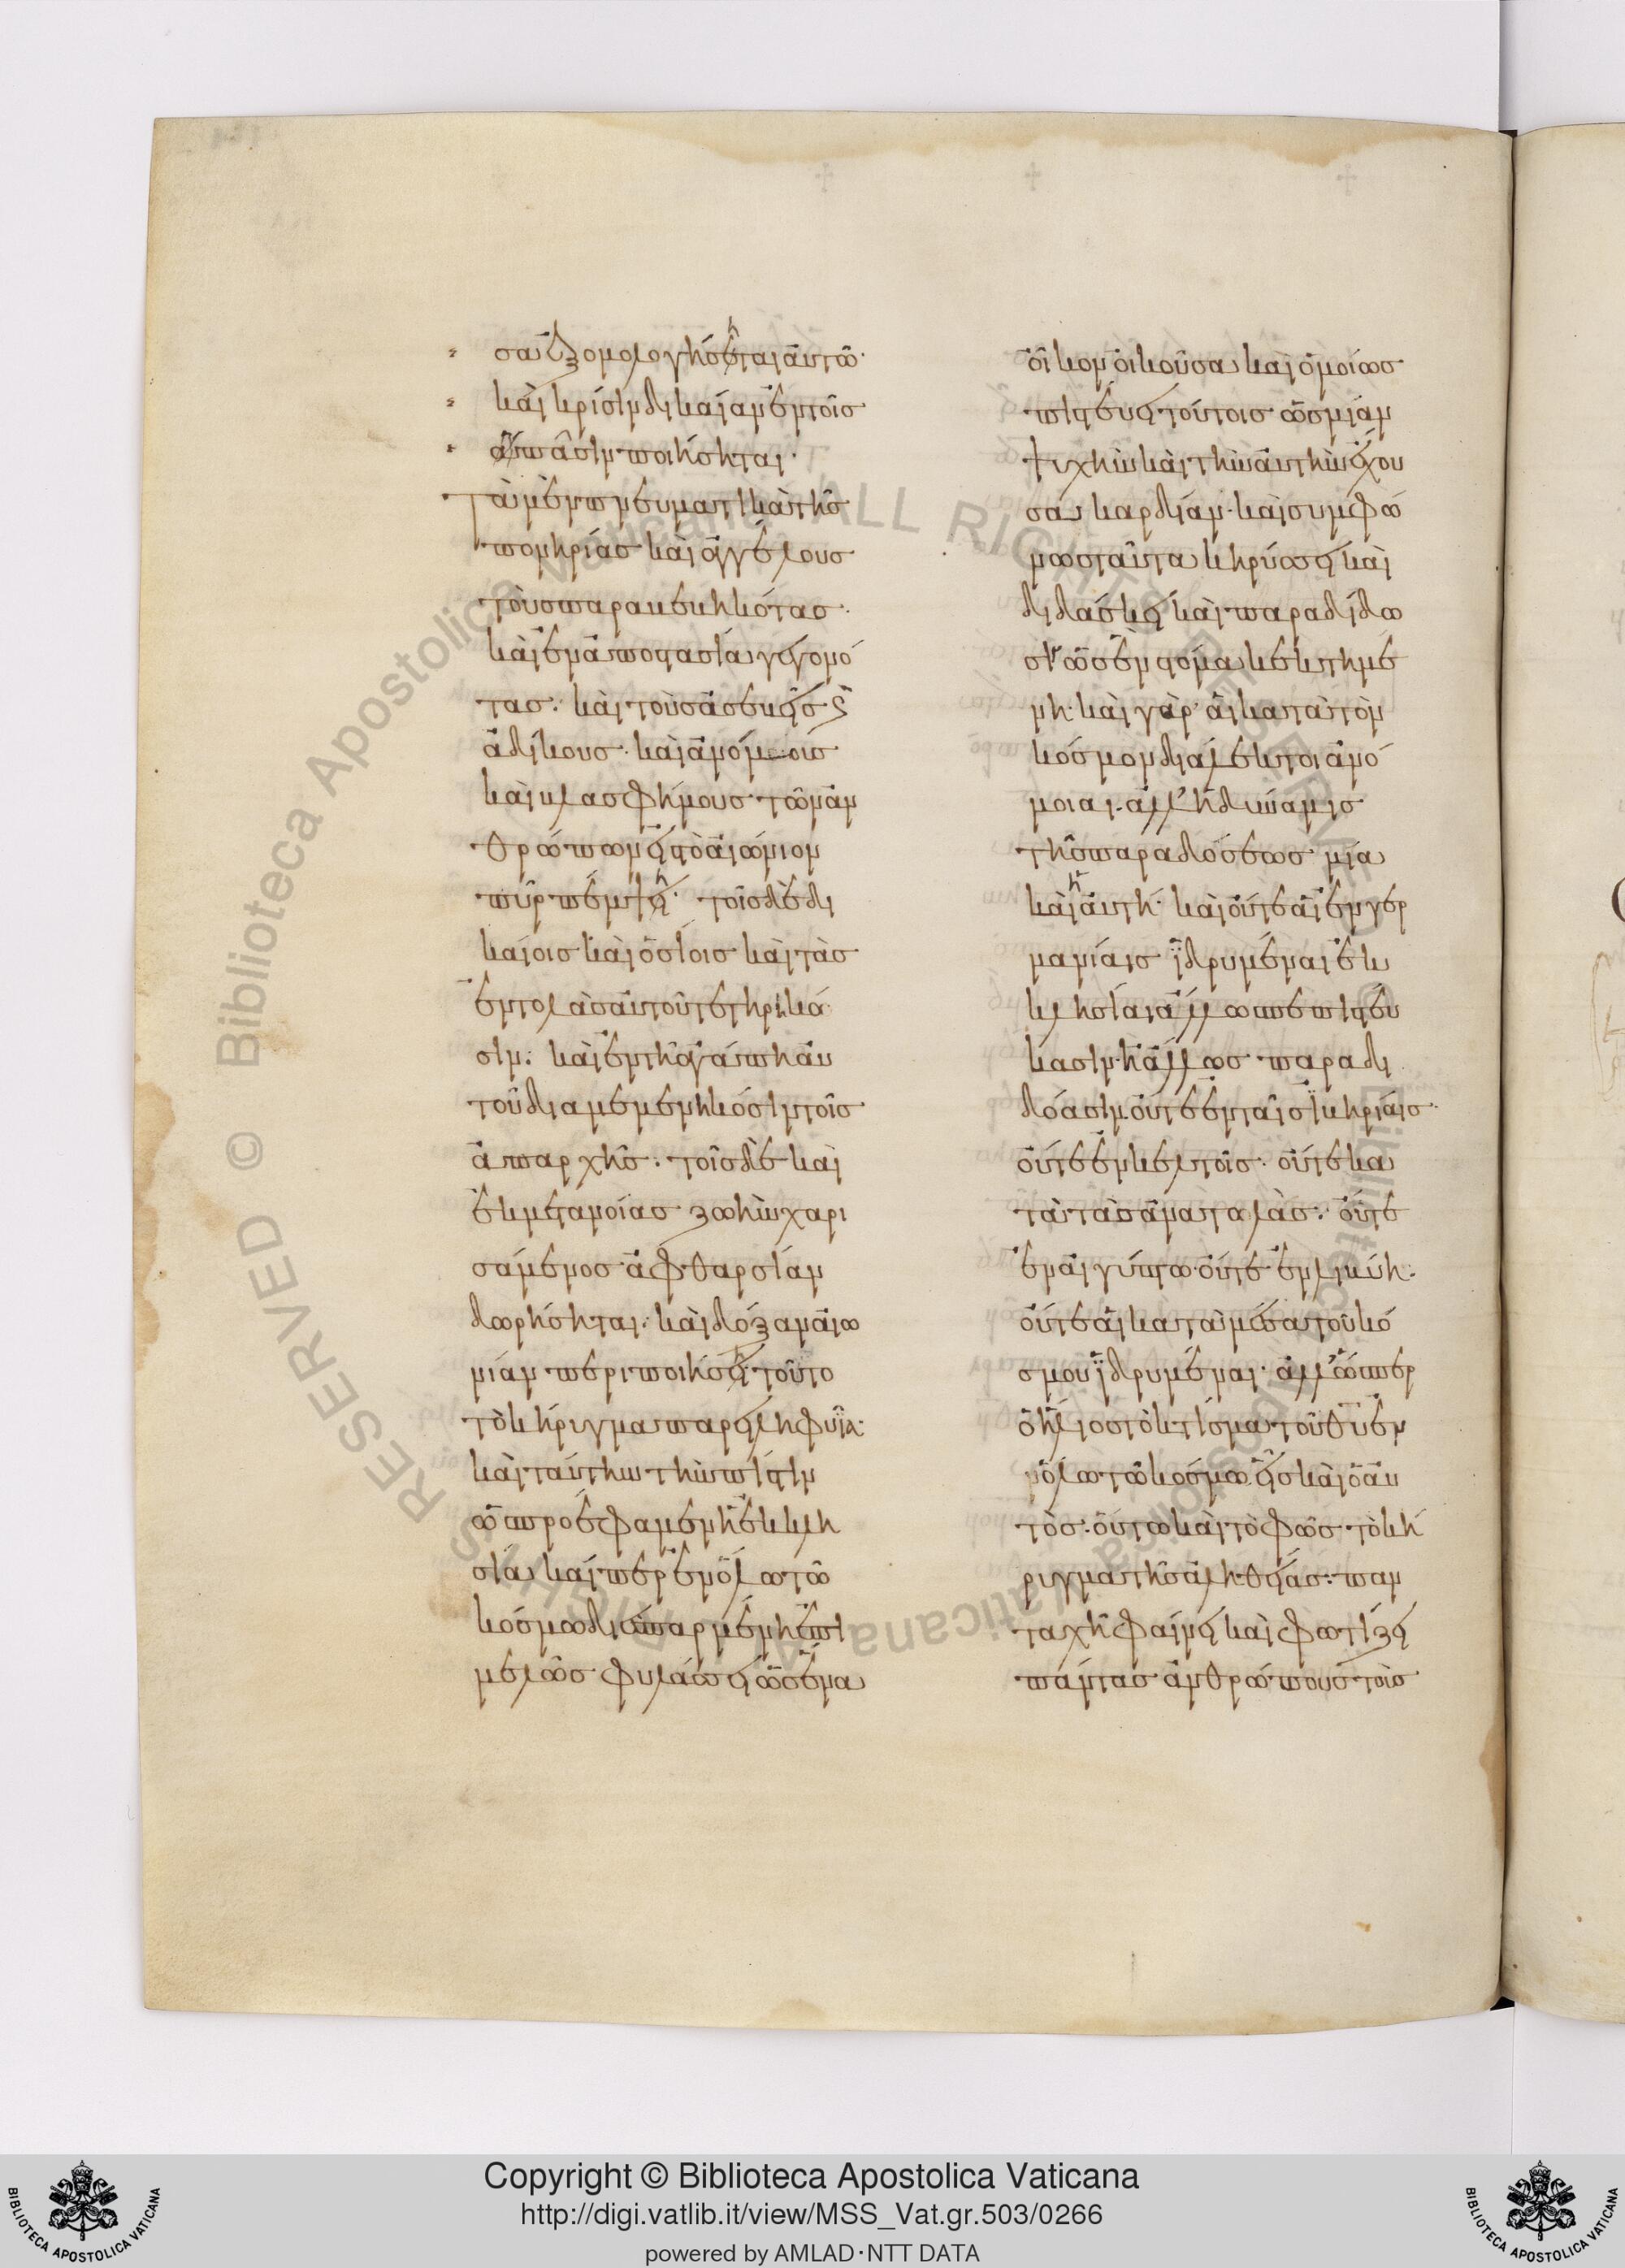 σα ἐξομολογήσεται αὐτῷ·
καὶ κρίσιν δικαίαν ἐν τοῖς
ἅπασιν ποιήσηται·
Τὰ μὲν πνευματικὰ τῆς
πονηρίας καὶ ἀγγέλους
τοὺς παραβεβηκότας·
καὶ ἐν ἀποστασία γεγονό
τας· καὶ τοὺς ἀσεβεῖς ϛ
ἀδίκους· καὶ ἀνόμους
καὶ βλασφήμους τῶν ἀν
θρώπων εἰς τὸ αἰώνιον
πῦρ πέμψη· τοῖς δὲ δι
καίοις καὶ ὁσίοις καὶ τὰς
ἐντολὰς αὐτοῦ τετηρηκό
σιν· καὶ ἐν τῆ ἀγάπη αὐ
τοῦ διαμεμενηκόσιν τοῖς
ἀπαρχῆς· τοῖς δὲ καὶ
ἐκ μετανοίας ζωὴν χαρι
σάμενος ἀφθαρσίαν
δωρήσηται· καὶ δόξαν αἰω
νίαν περιποιήσῃ· τοῦτο
τὸ κήρυγμα παρειληφυῖα·
καὶ ταύτην τὴν πίστιν
ὡς προέφαμεν ἡ ἐκκλη
σία καίπερ ἐν ὅλω τῶ
κόσμω διεσπαρμένη ἐπι
μελῶς φυλάσσει ὡς ἕνα
οἶκον οἰκοῦσα καὶ ὁμοίως
πιστεύει τούτοις ὡς μίαν
ψυχὴν καὶ τὴν αὐτὴν ἔχου
σα καρδίαν· καὶ συμφώ
νως ταῦτα κηρύσσει καὶ
διδάσκει καὶ παραδίδω
σιν ὡς ἓν στόμα κεκτημέ
νη· καὶ γὰρ αἱ κατὰ τὸν
κόσμον διάλεκτοι ἀνό
μοιαι· ἀλλ' ἡ δύναμις
τῆς παραδόσεως μία
καὶ ἡ αὐτή· καὶ οὔτε αἱ ἐν γερ
μανίαις ἱδρυμέναι ἐκ
κλησίαι ἄλλως πεπιστεύ
κασιν ἢ ἄλλως παραδι
δόασιν· οὔτε ἐν ταῖς ἰβηρίαις·
οὔτε ἐν κελτοῖς· οὔτε κα
τὰ τὰς ἀνατολάς· οὔτε
ἐν αἰγύπτω· οὔτε ἐν λιβύη·
οὔτε αἱ κατὰ μέσα τοῦ κό
σμου ἱδρυμέναι· ἀλλ' ὥσπερ
ὁ ἥλιος τὸ κτίσμα τοῦ θυ ἐν
ὅλω τῶ κόσμω εἷς καὶ ὁ αὐ
τός· οὕτω καὶ τὸ φῶς τὸ κή
ρυγμα τῆς ἀληθείας· παν
ταχῆ φαίνει καὶ φωτίζει
πάντας ἀνθρώπους τοὺς
Copyright © Biblioteca Apostolica Vaticana
http://digi.vatlib.it/view/MSS_Vat.gr.503/0266
powered by AMLAD·NTT DATA